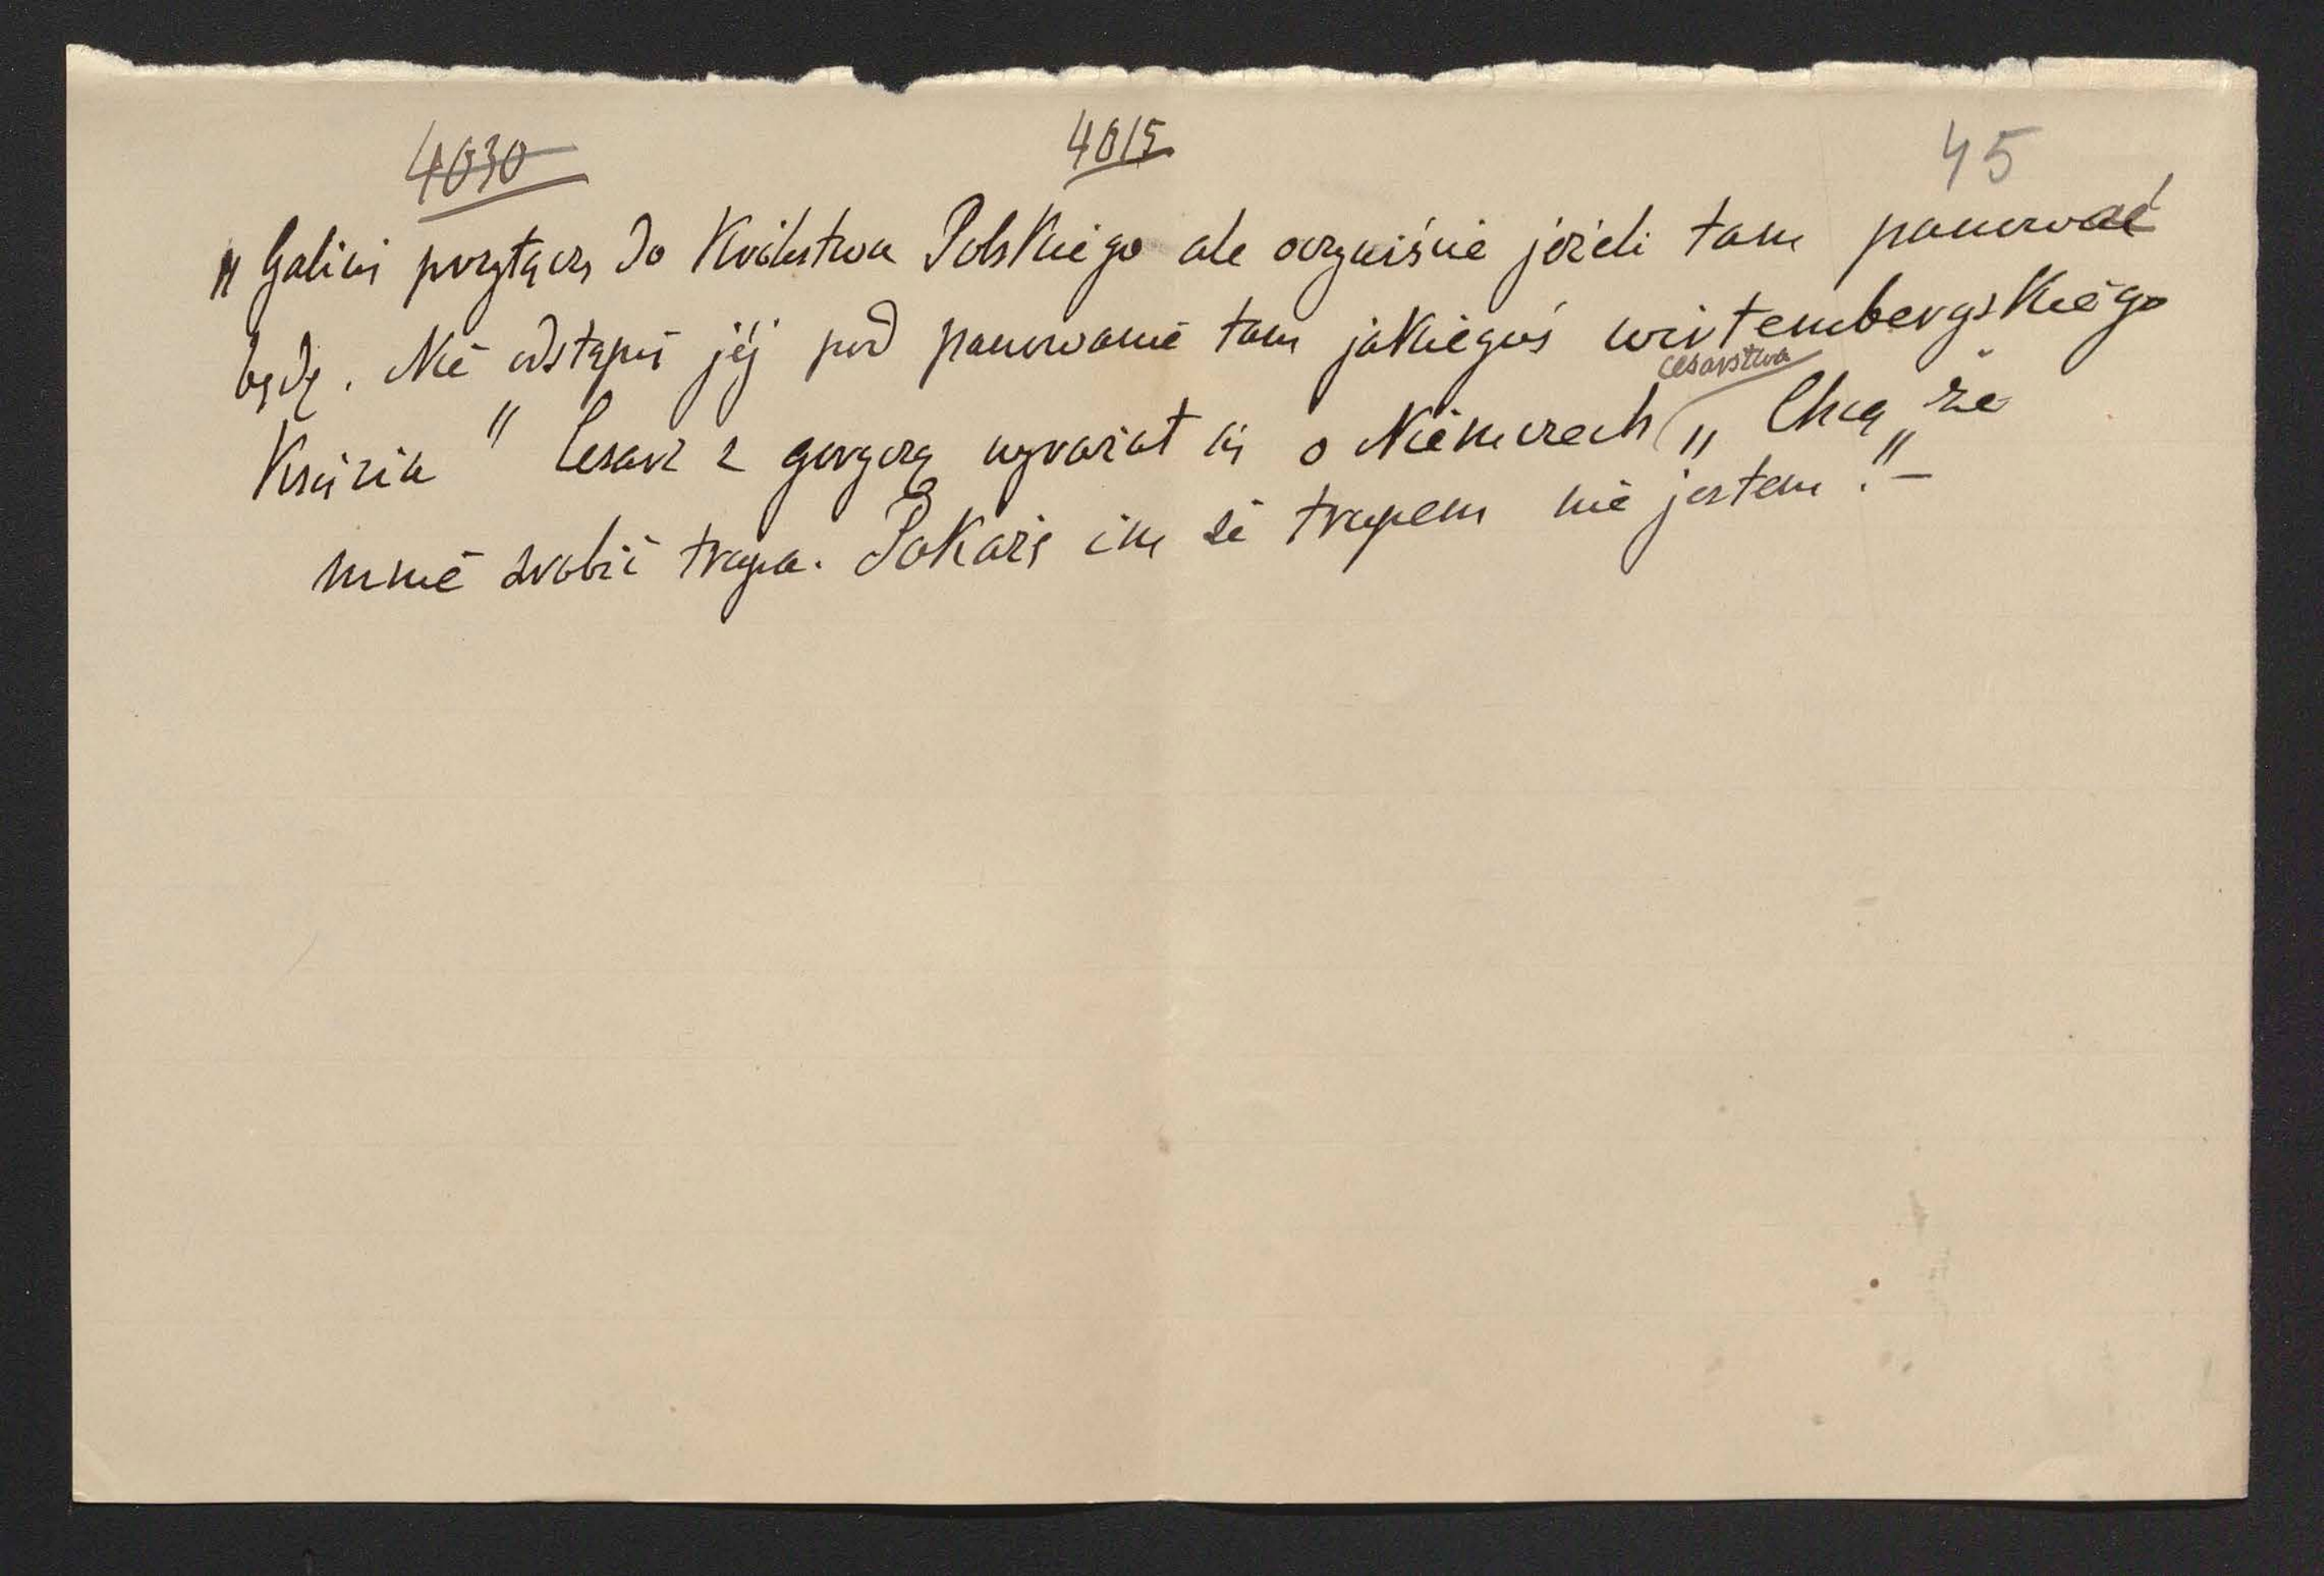 4030 4015 45
„Galicię przyłączę do Królestwa Polskiego ale oczywiście jeżeli tam panować
będę. Nie odstąpię jéj pod panowanie tam jakiegoś wirtembergskiego
cesarstwa
Księcia" Cesarz z goryczą wyrażał się o Niemczech „Chcą że
mnie zrobić trupa. Pokażę im że trupem nie jestem."–